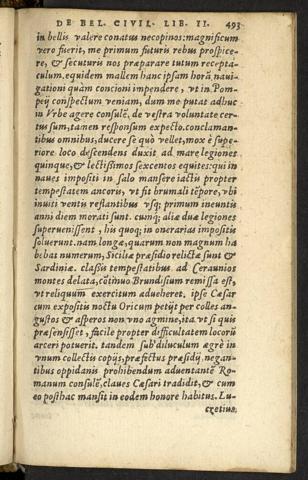 DE BEL. CIVIL. LIB. II. 493
in bellis valere conatus necopinos: magnificum
vero fuerit, me primum futuris rebus prospice-
re, & securuts nos præparare tutum recepta-
culum. equidem mallem hanc ipsam horã, naui-
gationi quam concioni impendere, vt in Pom-
peÿ conspectum veniam, dum me putat adhuc
in Vrbe agere consulẽ, de vestra voluntate cer-
tus sum, tamen responsum expecto. conclaman-
tibus omnibus, ducere se quò vellet, mox è supe-
riore loco descendens duxit ad mare legiones
quinque, & lectissimos sexcenos equites: qui in
naues impositi in salo mansere iactis propter
tempestatem ancoris, vt fit brumali tẽpore, vbi
inuiti ventis reflantibus vsq; primum ineuntis
anni diem morati sunt. cumq; aliæ duæ legiones
superuenissent, his quoq; in onerarias impositis
soluerunt. nam longæ, quarum non magnum ha
bebat numerum, Siciliæ præsidio relictæ sunt &
Sardiniæ. classis tempestatibus ad Ceraunios
montes delata, cõtinuo Brundisium remissa est,
vt reliquum exercitum adueheret. ipse Cæsar
cum expositis noctu Oricum petÿt per colles an-
gustos & asperos non vno agmine, ita vt si quis
præsensisset, facile propter difficultatem locorũ
arceri potuerit. tandem sub diluculum ægrè in
vnum collectis copÿs, præfectus præsidÿ, negan-
tibus oppidanis prohibendum aduentantẽ Ro-
manum consulẽ, claues Cæsari tradidit, & cum
eo posthac mansit in eodem honore habitus. Lu-
cretius